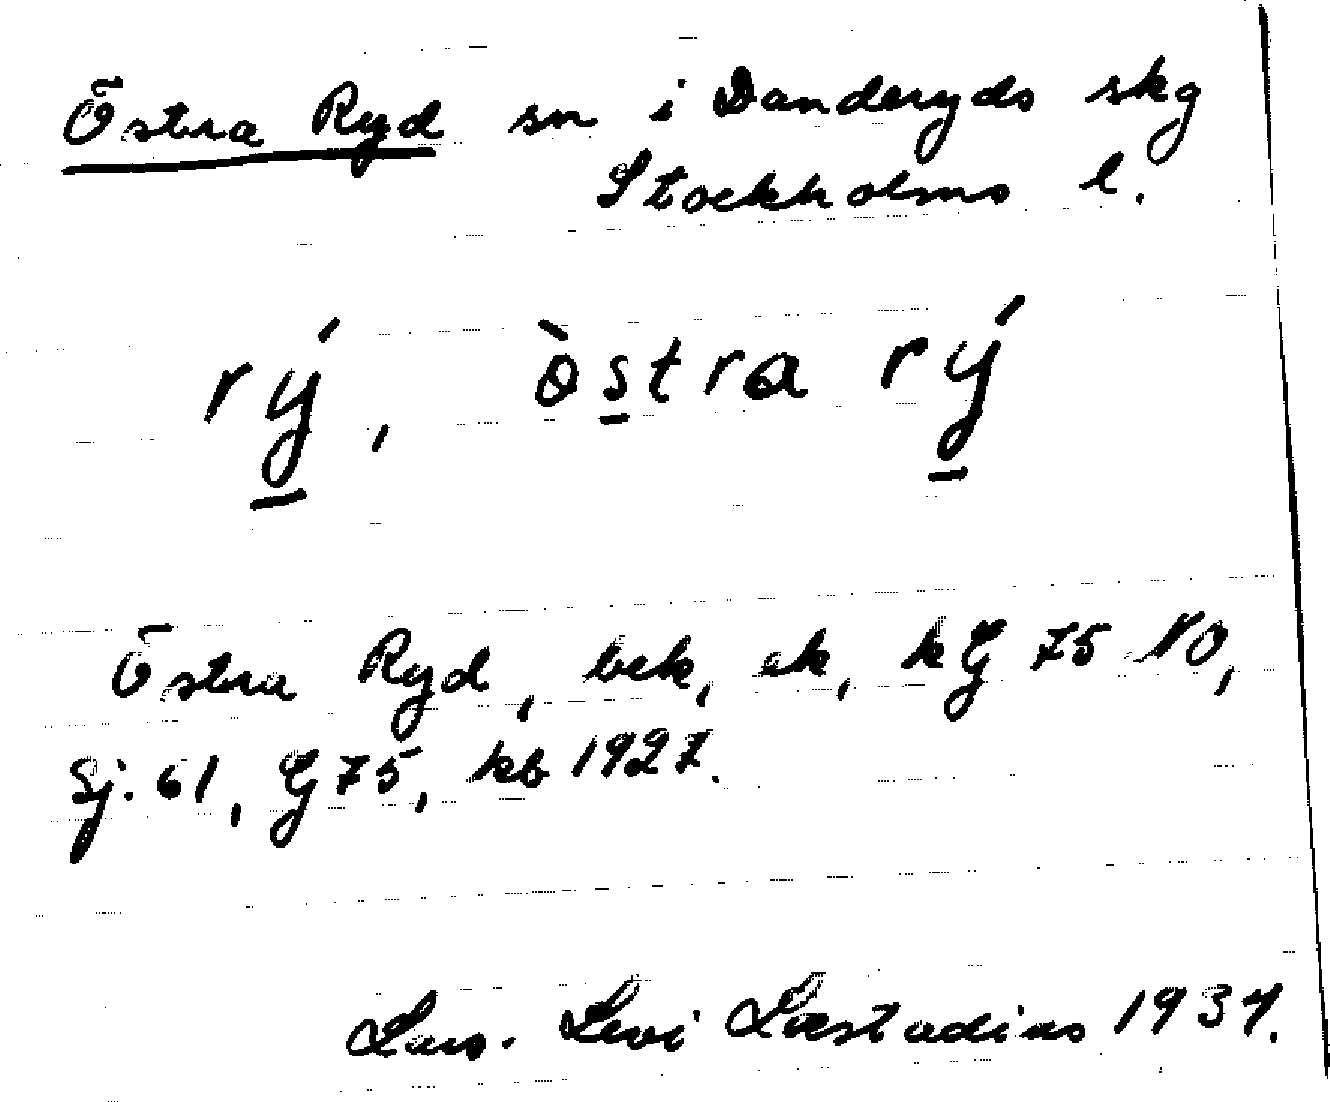 Östra Ryd sn i Danderyds skg
Stockholms l.
rý, òstra rý
Östra Ryd, bek, ek, kG 75 NO,
Sj. 61, G 75, kb 1927.
Lars. Levi Læstadius 1934.